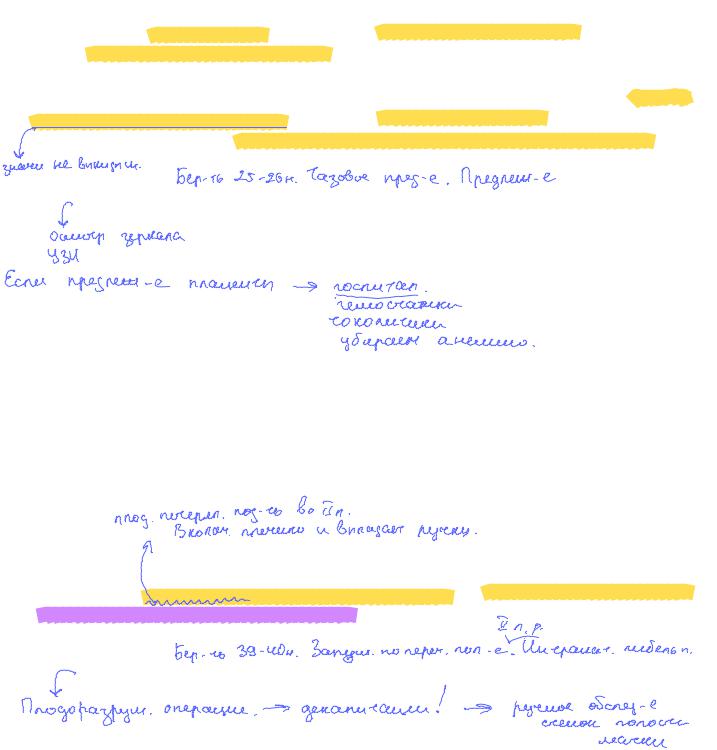 значит не
Бер-ть 25-26н. Тазовое пред-е. Предлеж-е
осмотр зеркала
УЗИ
Если предлеж-е плаценты → госпитал.
гемостатики
токолитики
убираем анемию.
плод. потерял. под-ть во II п.
Вколоч. плечико и выпадает ручка.
II п.р.
Бер-ть 39-40н. Запущ. попереч. пол-е. Интранат. гибель п.
Плодоразруш. операции. → декапитация! → ручное обслед-е
стенок полости
матки